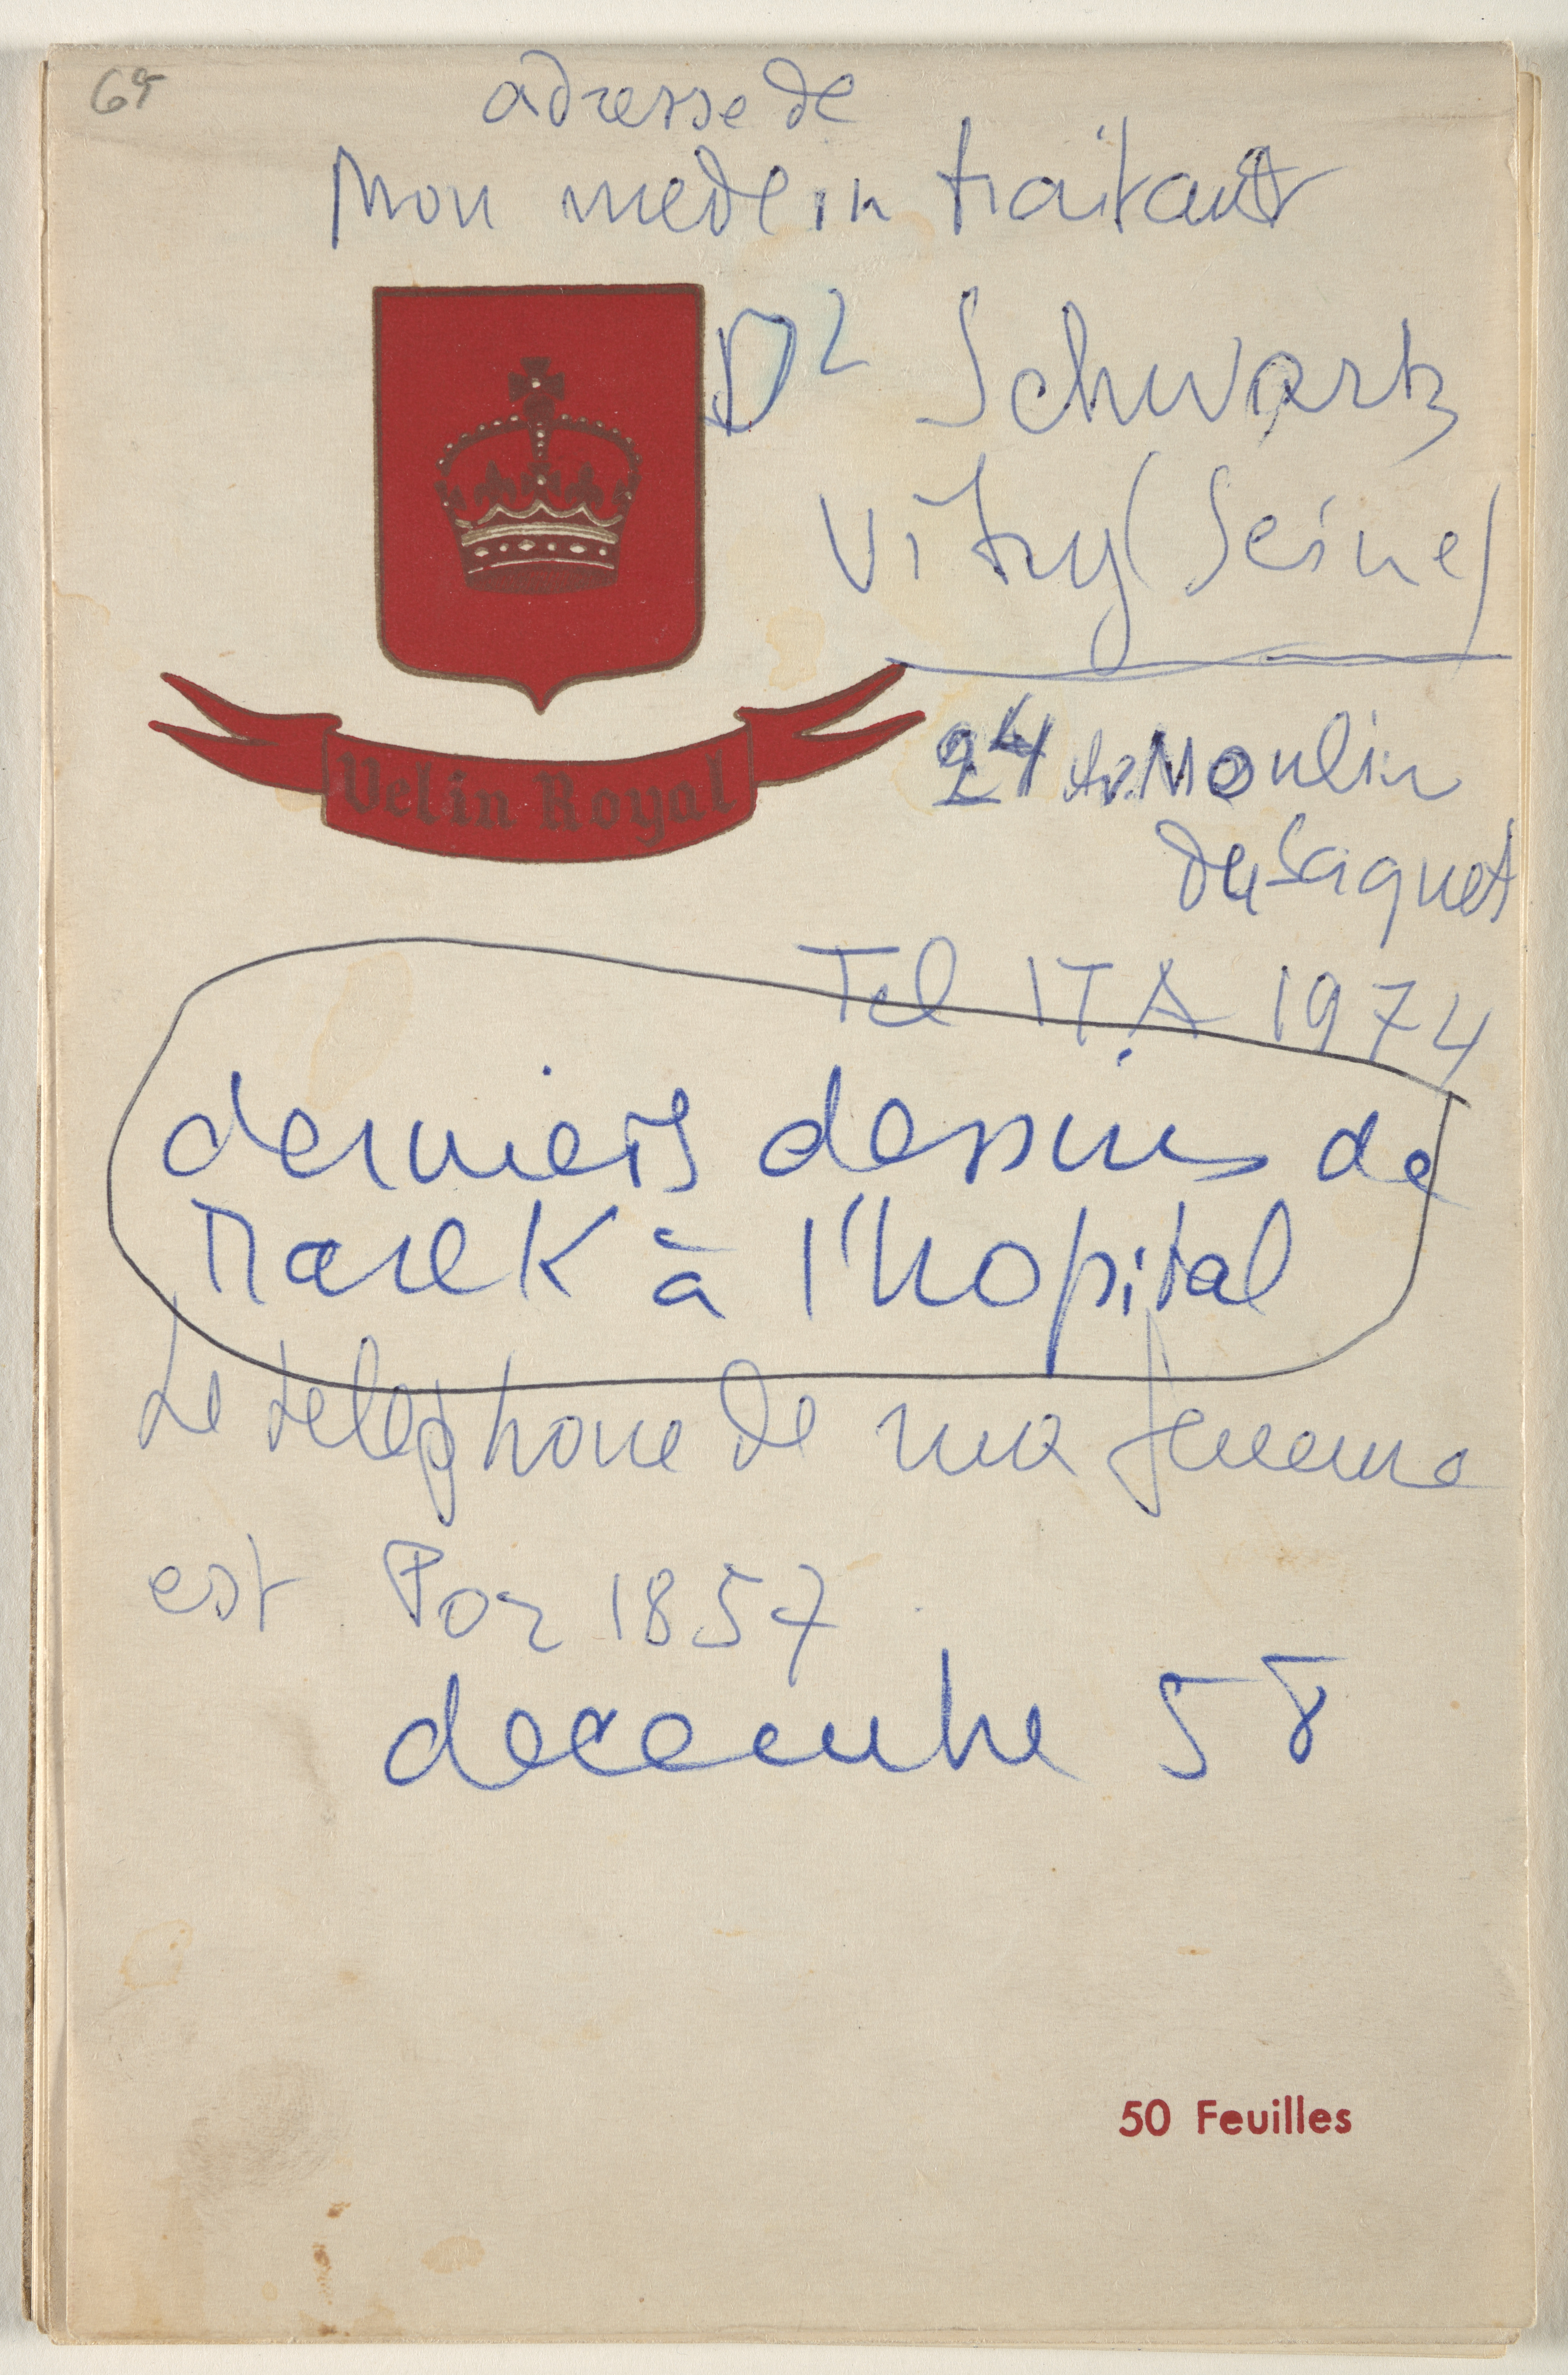 69
adresse de
Mon medein traitant
Dr Schwartz
Vitry (Seine)
24 Av. Moulin
du Saquet
Velin Royal
Tel ITA 1974
derniers dessins de
Marek à l'hopital
Le telephone de ma femme
est Por 1857
decembre 58
50 Feuilles